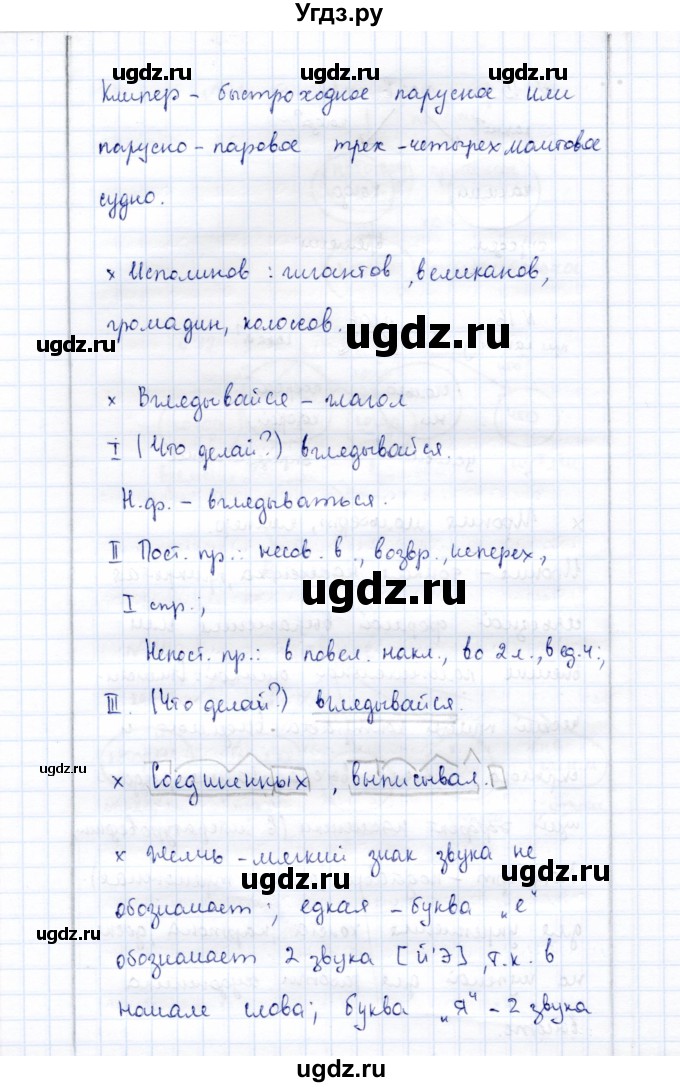 Угдз.ру
ugdz.ru ugdz.ru ugdz.ru
Клипер - быстроходное парусное или
парусно - паровое трех - четырехмачтовое
судно.
ugdz.ru
× Исполинов : гигантов, великанов,
громадин, колоссов.
ugdz.ru ugdz.ru ugdz.ru
× Вглядывайся - глагол
I (Что делай?) вглядывайся.
Н.ф. - вглядываться.
II Пост. пр.: несов. в., возвр., неперех.,
ugdz.ru
I спр.;
Непост. пр.: в повел. накл., во 2 л., в ед.ч.;
III. (Что делай?) вглядывайся.
ugdz.ru ugdz.ru
× Соединенных, выписывал.
× Желчь - мягкий знак звука не
ugdz.ru ugdz.ru
обозначает; едкая - буква „е"
ugdz.ru
обозначает 2 звука [й'э], т.к. в
начале слова; буква „я" - 2 звука
ugdz.ru ugdz.ru ugdz.ru